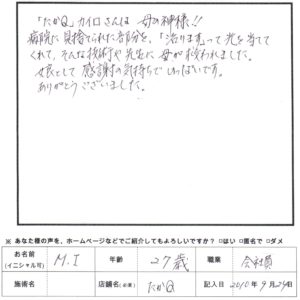 「たかQ」カイロさんは 母の神様!!
病院に見捨てられた部分を、「治ります」って光を当てて
くれて、そんな技術や先生に母が救われました。
娘として感謝の気持ちでいっぱいです。
ありがとうございました。
※ あなた様の声を、ホームページなどでご紹介してもよろしいですか？ □はい □匿名で □ダメ
お名前 (イニシャル可) M.I 年齢 27歳 職業 会社員
施術名 店舗名(必須) たかQ 記入日 2010年9月29日